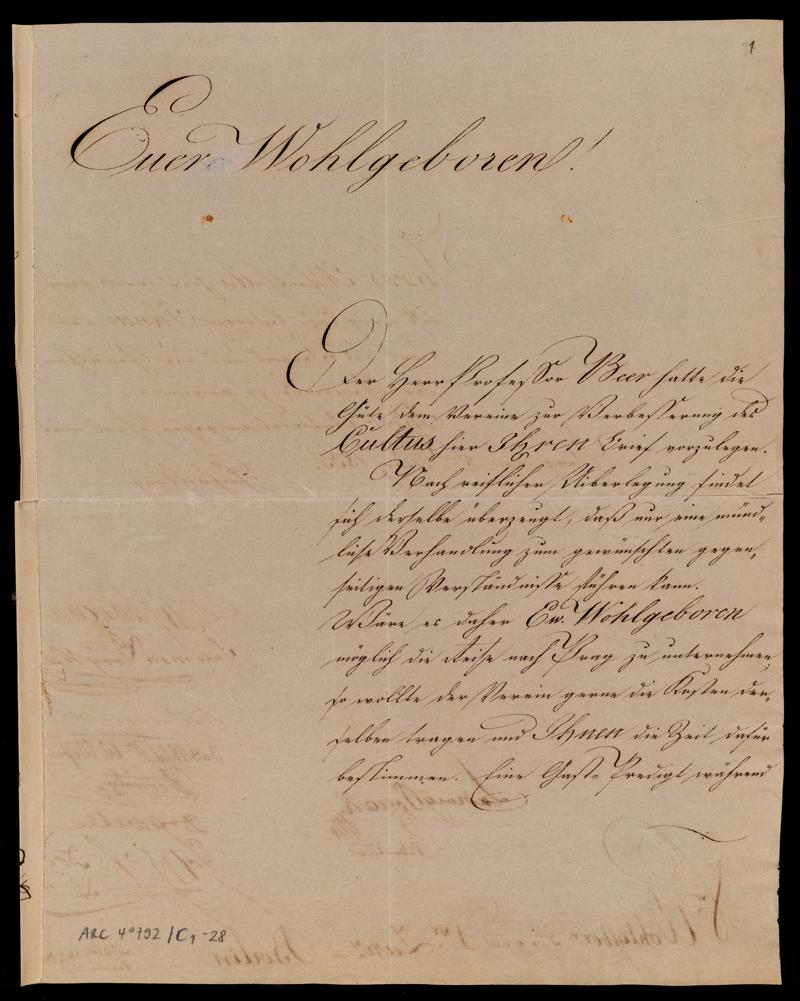 1
Euer Wohlgeboren!
Der Herr Professor Beer hatte die
Güte dem Vereine zur Verbesserung des
Cultus hier Ihren Brief vorzulegen.
Nach reiflicher Uiberlegung findet
sich derselbe überzeugt, daß nur eine münd„
liche Verhandlung zum gewünschten gegen„
seitigen Verständnisse führen kann.
Wäre es daher Ew. Wohlgeboren
möglich die Reise nach Prag zu unternehmen,
so wollte der Verein gerne die Kosten der„
selben tragen und Ihnen die Zeit dafür
bestimmen. Eine Gast-Predigt während
ARC 4°792/C1-28